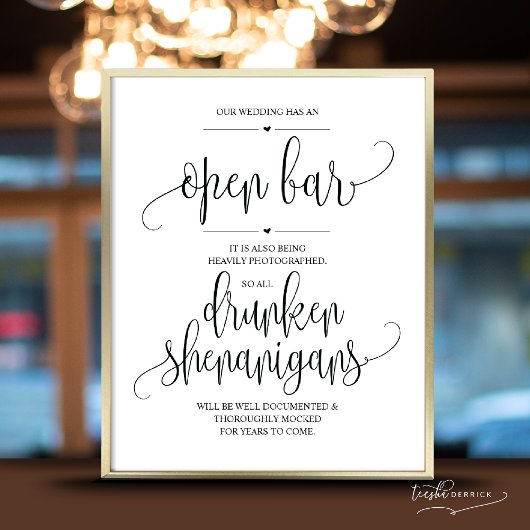 OUR WEDDING HAS AN
open bar
IT IS ALSO BEING
HEAVILY PHOTOGRAPHED.
SO ALL
drunken
shenanigans
WILL BE WELL DOCUMENTED &
THOROUGHLY MOCKED
FOR YEARS TO COME.
teesha DERRICK